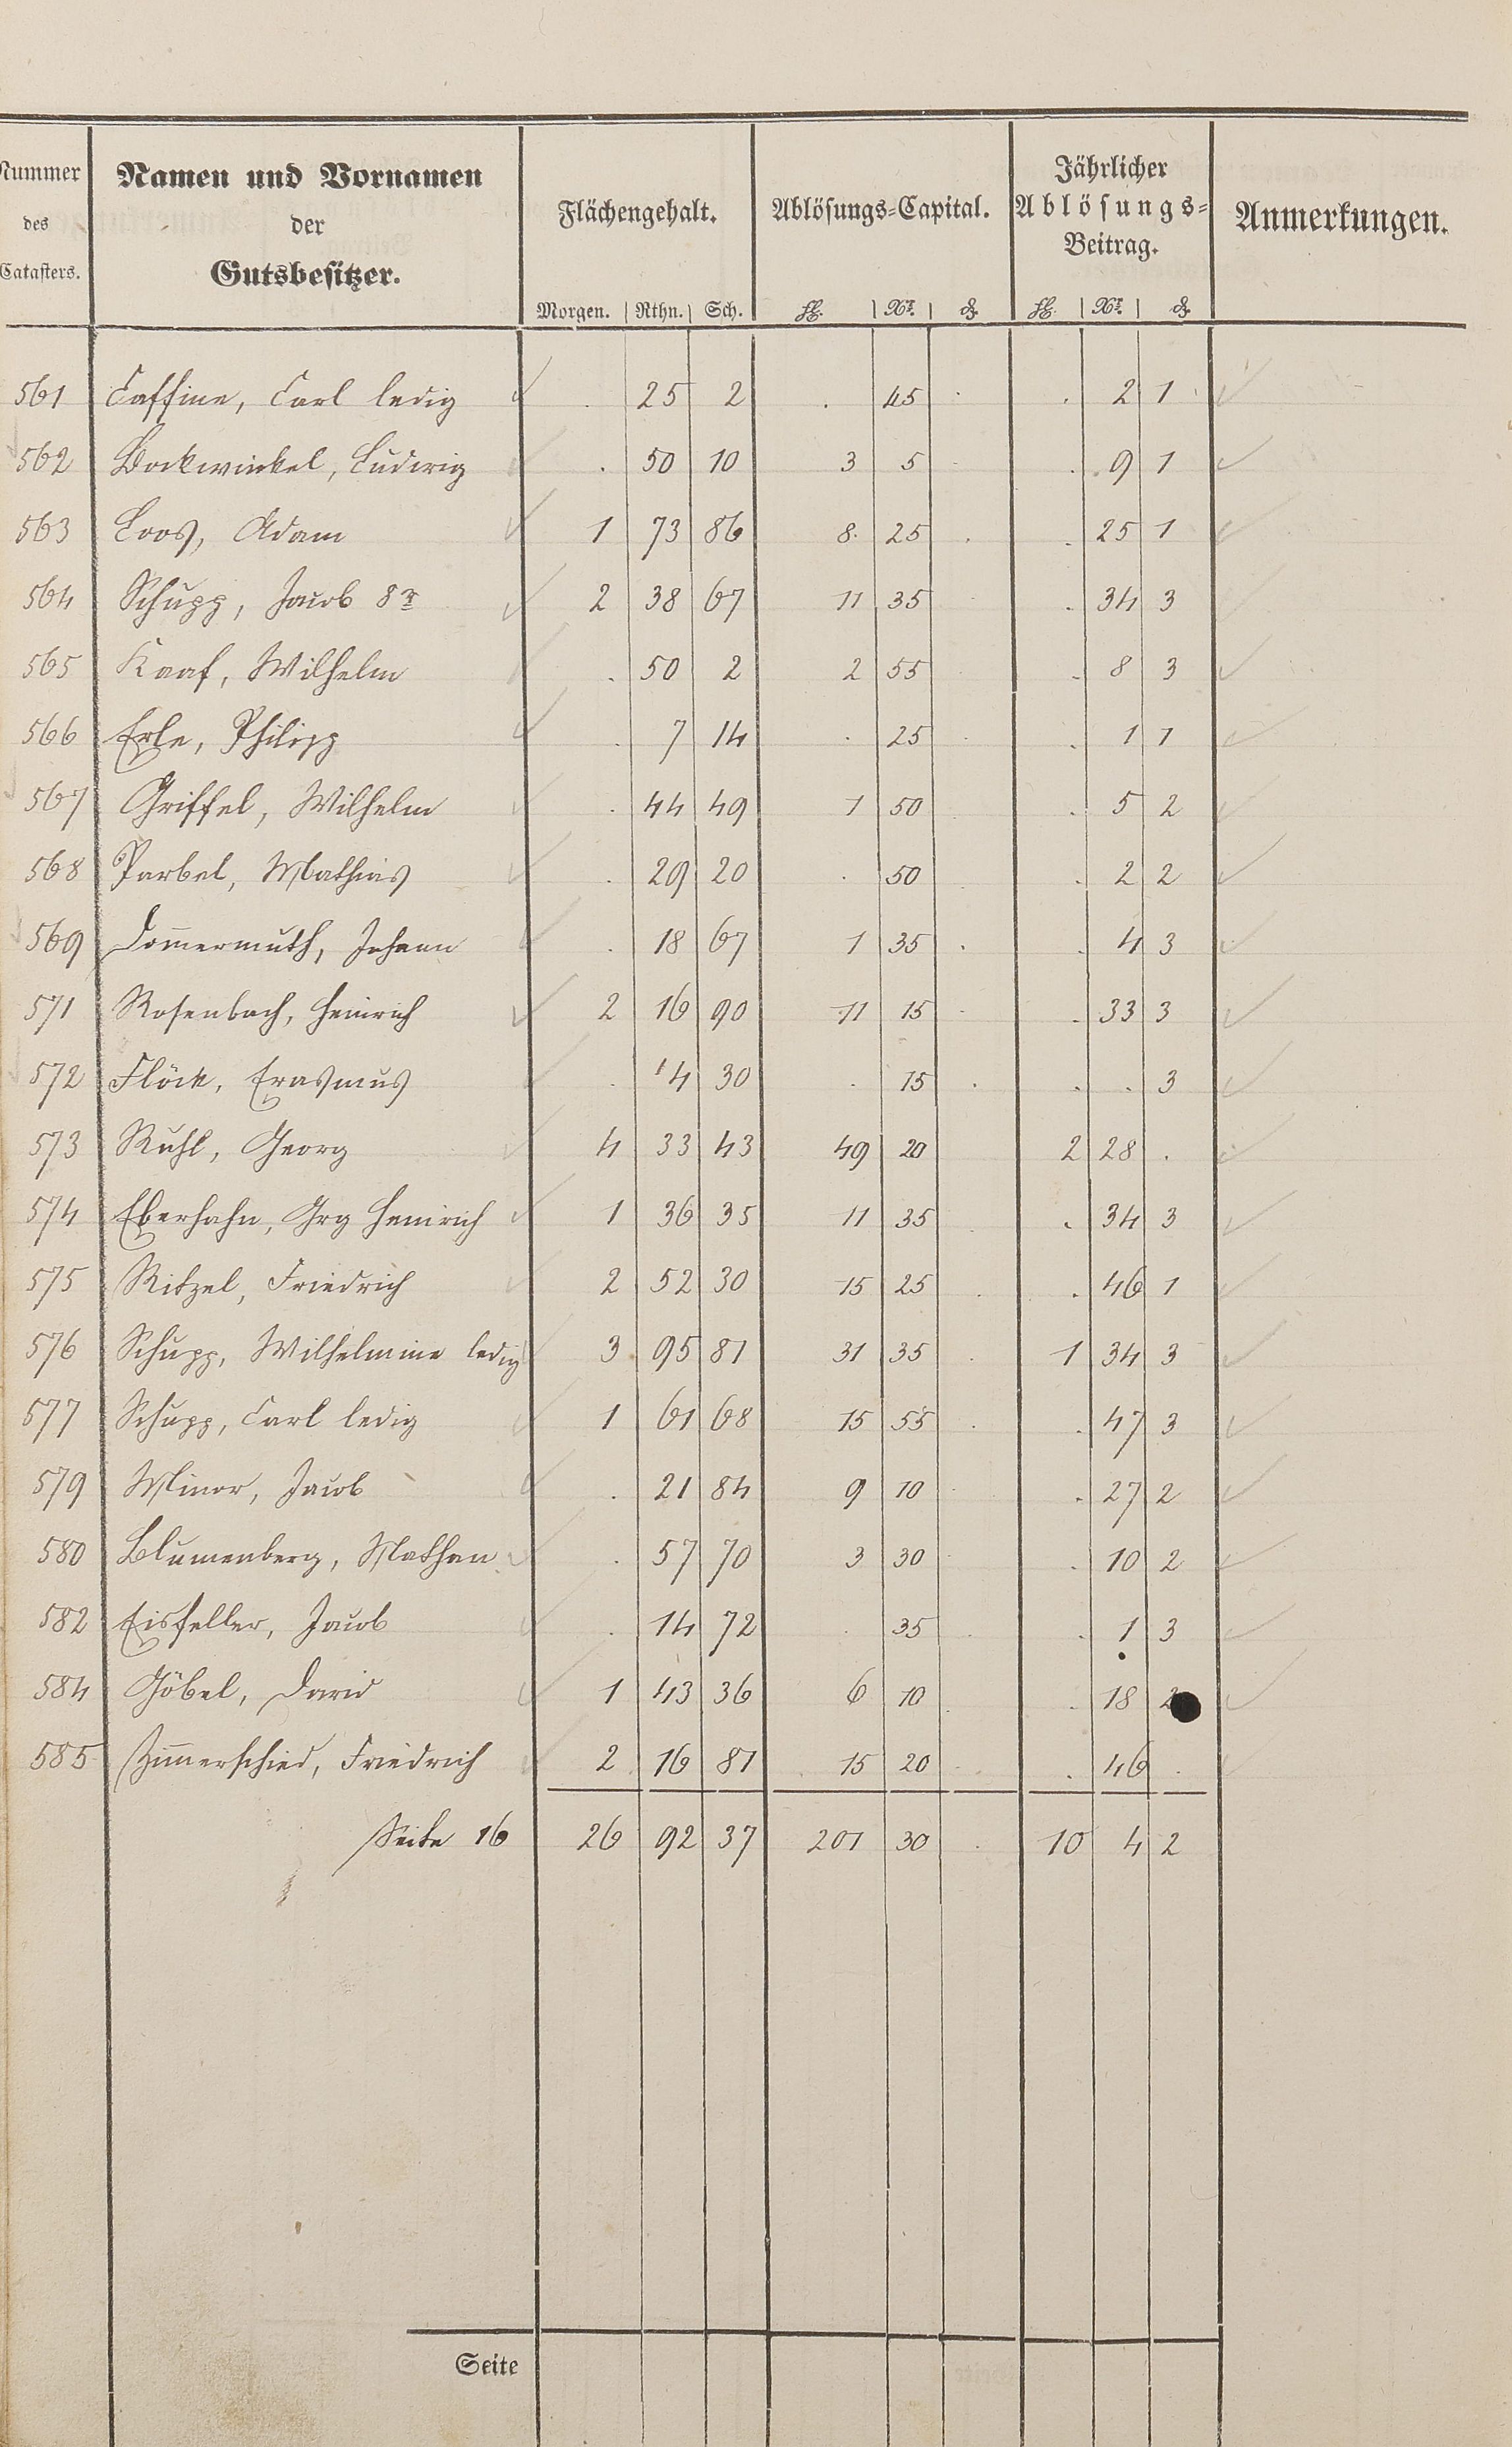 Nummer des Catasters. | Namen und Vornamen der Gutsbesitzer. | Flächengehalt. | Ablösungs-Capital. | Jährlicher Ablösungs-Beitrag. | Anmerkungen.
Morgen. | Rthn. | Sch. | fl. | Xr. | ₰ | fl. | Xr. | ₰
561 Caffine, Carl ledig . 25 2 . 45 . . 2 1
562 Bockwinkel, Ludwig . 50 10 3 5 . . 9 1
563 Loos, Adam 1 73 86 8 25 . . 25 1
564 Schupp, Jacob 8r 2 38 67 11 35 . . 34 3
565 Kaaf, Wilhelm . 50 2 2 55 . 8 3
566 Erle, Philipp . 7 14 . 25 . . 1 1
567 Griffel, Wilhelm . 44 49 1 50 . 5 2
568 Parbel, Mathias . 29 20 . 50 . . 2 2
569 Dom̄ermuth, Johann . 18 67 1 35 . . 4 3
571 Rosenbach, Heinrich 2 16 90 11 15 . . 33 3
572 Flöck, Erasmus . 14 30 . 15 . . . 3
573 Ruhl, Georg 4 33 43 49 20 2 28 .
574 Eberhahn, Grg Heinrich 1 36 35 11 35 . . 34 3
575 Ritzel, Friedrich 2 52 30 15 25 . . 46 1
576 Schupp, Wilhelmine ledig 3 95 81 31 35 . 1 34 3
577 Schupp, Carl ledig 1 61 68 15 55 . . 47 3
579 Minor, Jacob . 21 84 9 10 . . 27 2
580 Blumenberg, Nathan . 57 70 3 30 . . 10 2
582 Eisfeller, Jacob . 14 72 . 35 . . 1 3
584 Göbel, David 1 43 36 6 10 . . 18 2
585 Zim̄erschied, Friedrich 2 16 81 15 20 . . 46 .
Seite 16 26 92 37 201 30 . 10 4 2
Seite